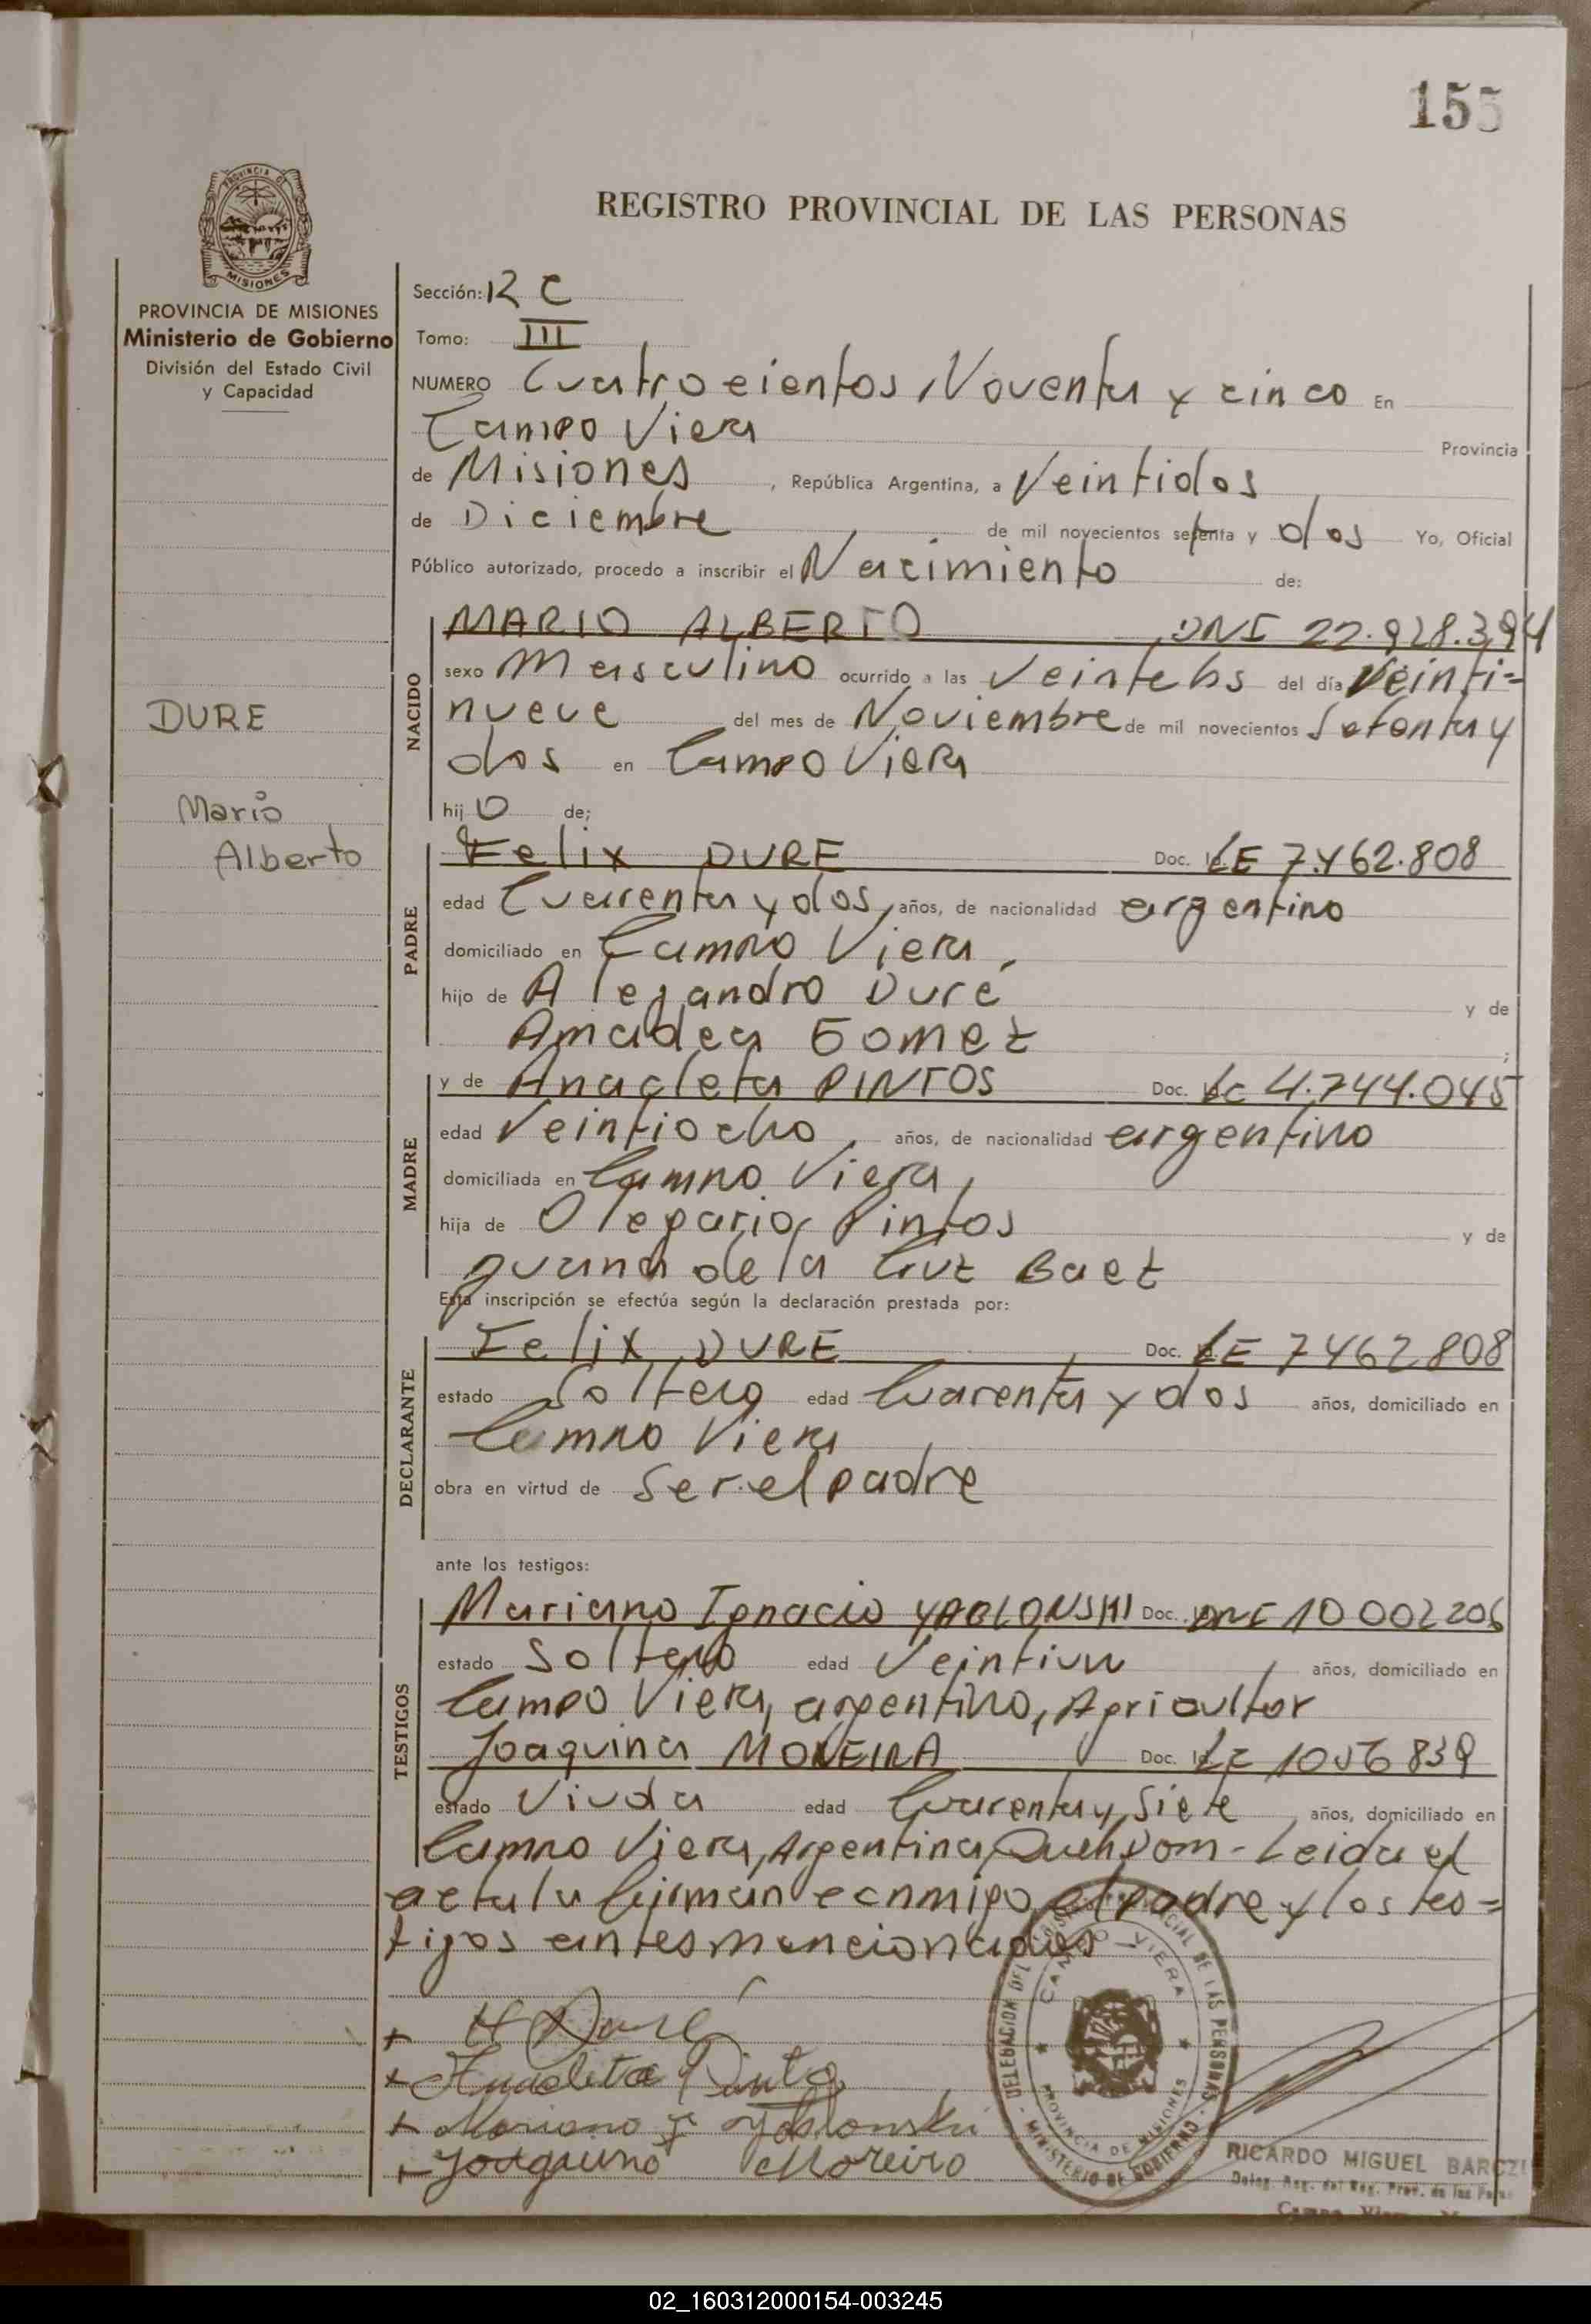 155
REGISTRO PROVINCIAL DE LAS PERSONAS
PROVINCIA DE MISIONES
Ministerio de Gobierno
División del Estado Civil
y Capacidad
DURE
Mario
Alberto
Sección: 12 C
Tomo: III
NUMERO Cuatrocientos Noventa y cinco En
Campo Viera Provincia
de Misiones, República Argentina, a Veintidos
de Diciembre de mil novecientos setenta y dos Yo, Oficial
Público autorizado, procedo a inscribir el Nacimiento de:
NACIDO
MARIO ALBERTO, DNI 22.928.394
sexo Masculino ocurrido a las Veinte hs del día Veinti=
nueve del mes de Noviembre de mil novecientos Setenta y
dos en Campo Viera
hijo de;
PADRE
Felix DURE Doc. LE 7.462.808
edad Cuarenta y dos, años, de nacionalidad argentino
domiciliado en Campo Viera,
hijo de Alejandro Duré y de
Amadea Gomez;
MADRE
y de Anacleta PINTOS Doc. LC 4.744.045
edad Veintiocho, años, de nacionalidad argentino
domiciliada en Campo Viera,
hija de Olegario Pintos y de
Juana de la Cruz Baez
Esta inscripción se efectúa según la declaración prestada por:
DECLARANTE
Felix DURE, Doc. LE 7462808
estado Soltero edad Cuarenta y dos años, domiciliado en
Campo Viera,
obra en virtud de Ser el padre
ante los testigos:
TESTIGOS
Mariano Ignacio YABLONSKI Doc. DNI 10002206
estado Soltero edad Veintiun, años, domiciliado en
Campo Viera, argentino, Agricultor
Joaquina MOREIRA Doc. LC 1056839
estado Viuda edad Cuarenta y Siete, años, domiciliado en
Campo Viera, Argentina, Queh Dom - Leida el
acta la firman conmigo, el padre y los tes=
tigos antes mencionados
+ Duré
+ Anacleta Pinto
+ Mariano I. Yablonski
+ Joaquina Moreira
DELEGACION DEL REGISTRO PROVINCIAL DE LAS PERSONAS
CAMPO VIERA
PROVINCIA DE MISIONES
MINISTERIO DE GOBIERNO
RICARDO MIGUEL BARCZI
Deleg. Reg. del Reg. Prov. de las Pers
02_160312000154-003245